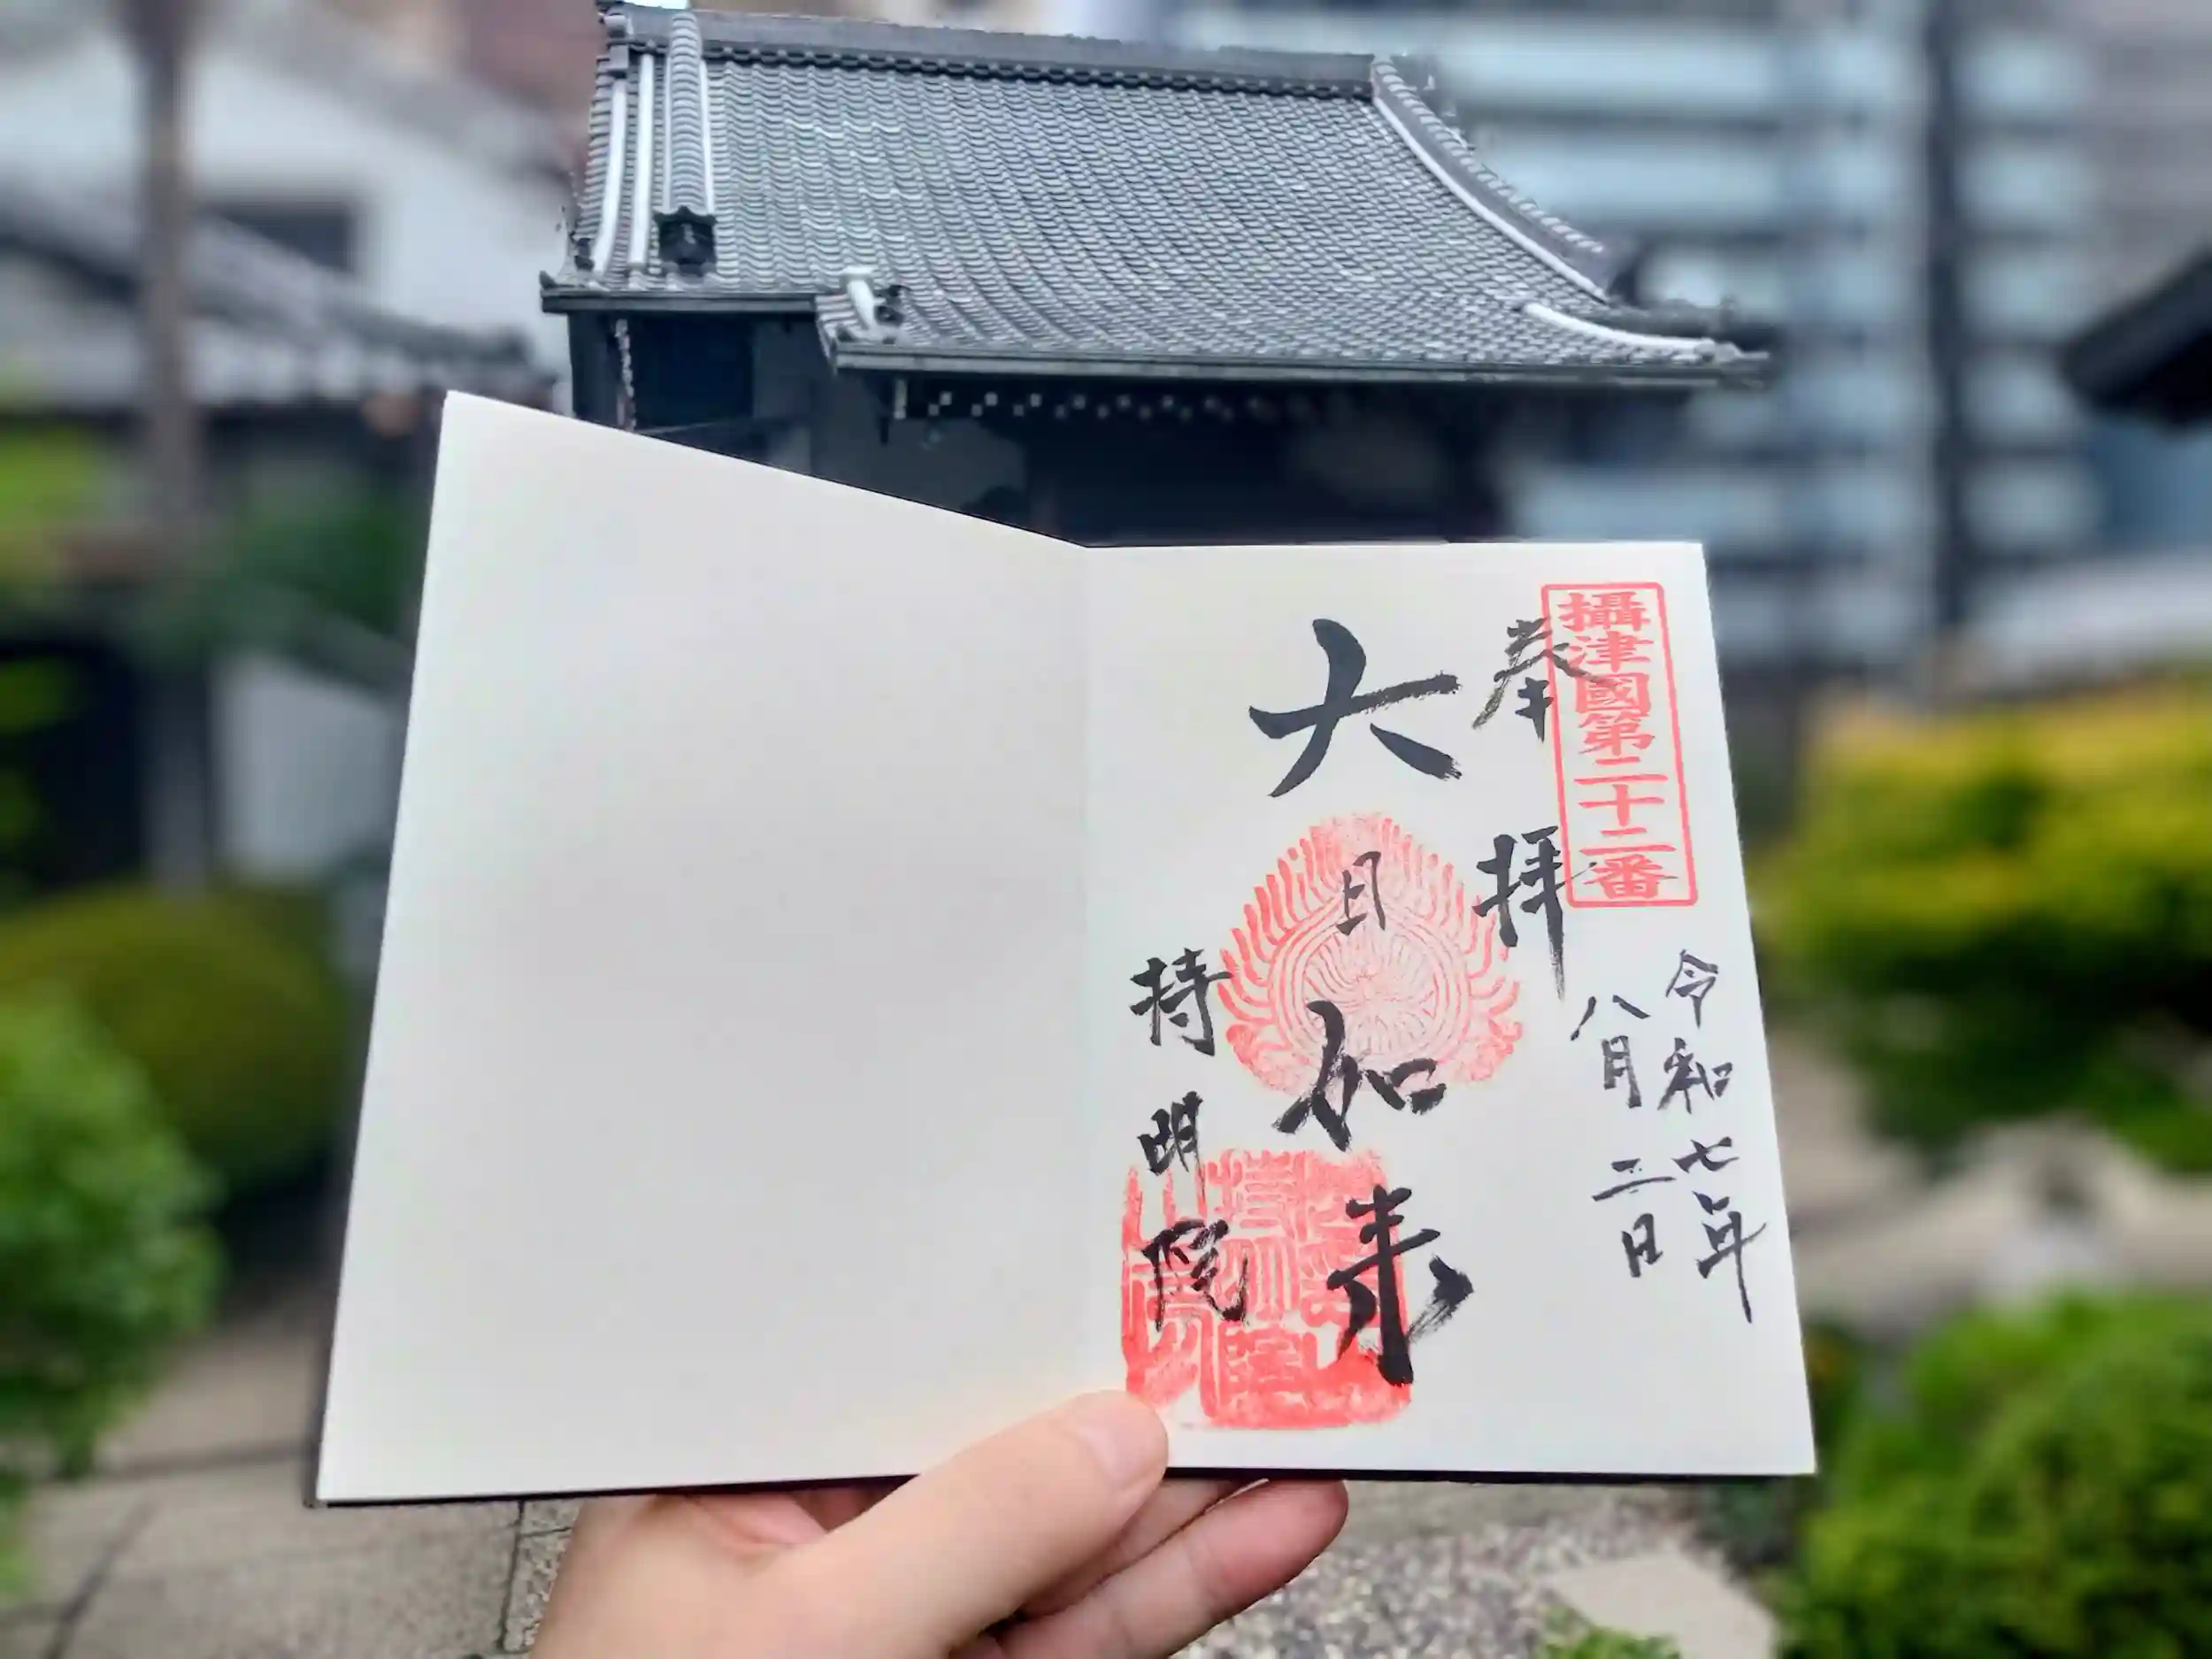 攝津國第二十二番
奉拝
令和七年
八月二日
大日如来
持明院